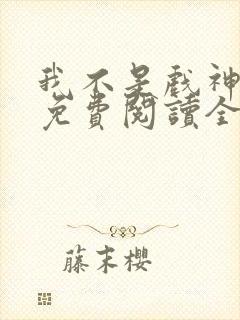 我不是戲神
免費閱讀全
藤末櫻